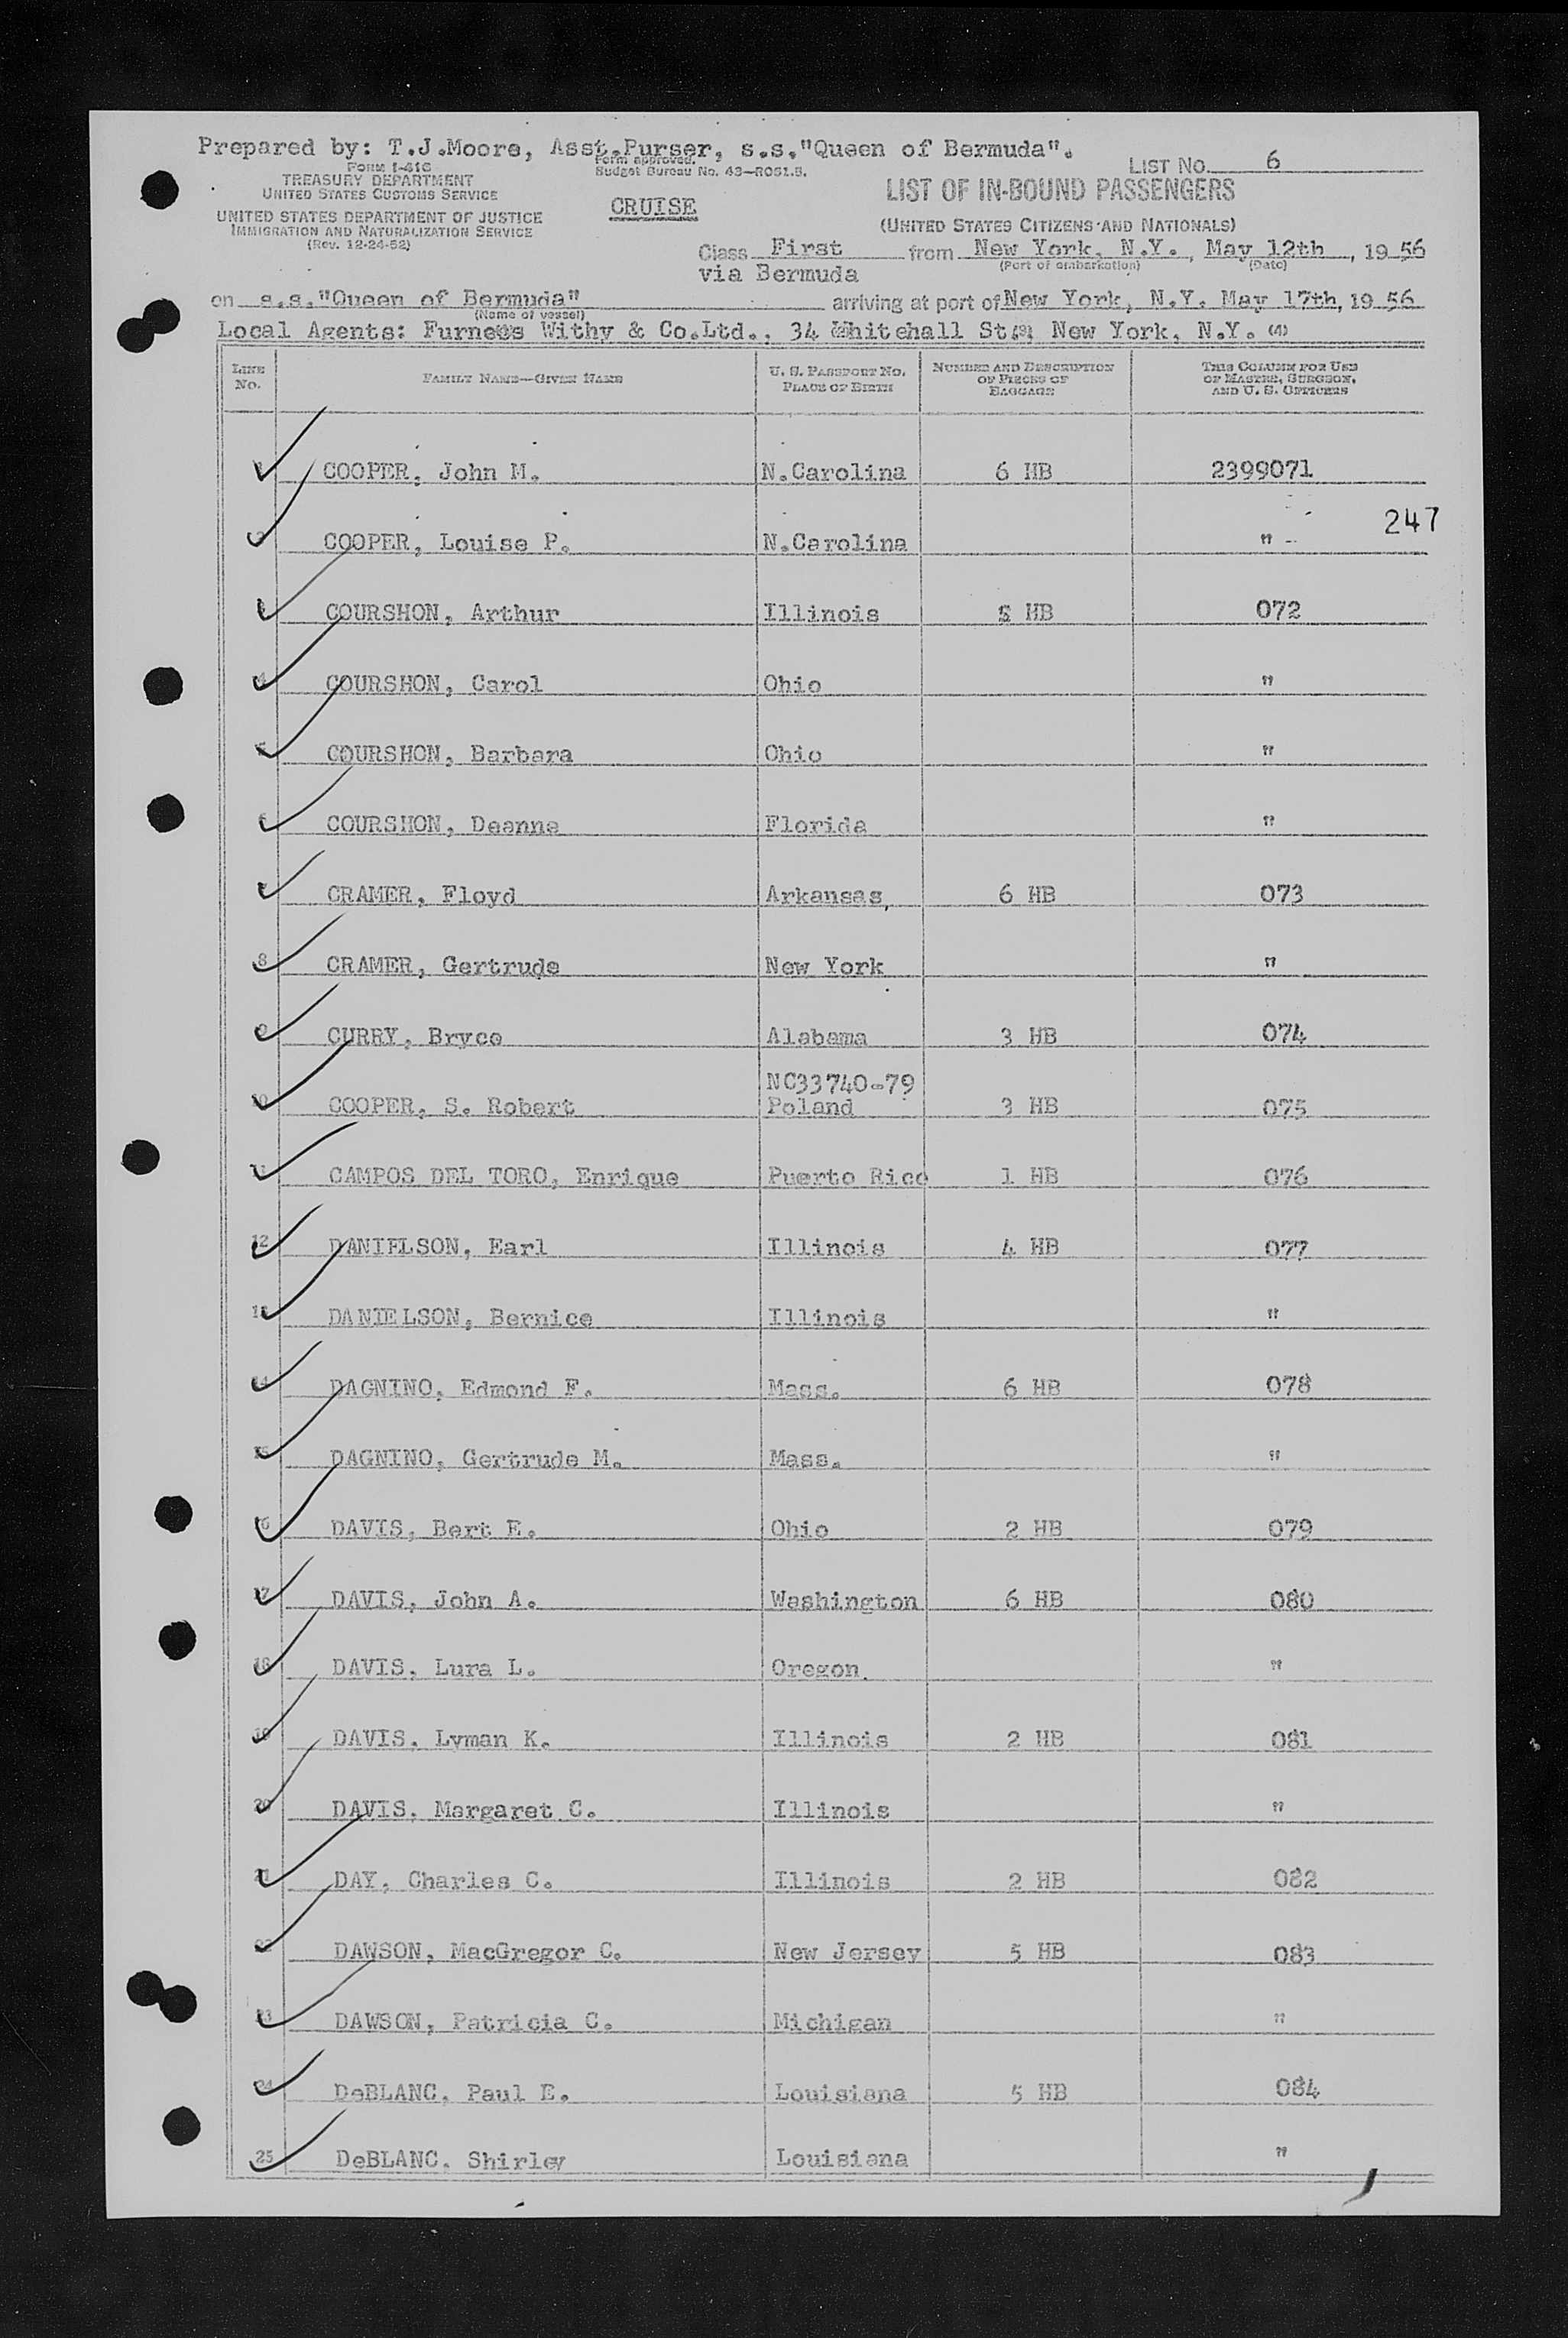 Prepared by: T.J.Moore, Asst.Purser, s.s."Queen of Bermuda".
FORM I-416
TREASURY DEPARTMENT
UNITED STATES CUSTOMS SERVICE
UNITED STATES DEPARTMENT OF JUSTICE
IMMIGRATION AND NATURALIZATION SERVICE
(Rev. 12-24-52)
Form approved.
Budget Bureau No. 43-R051.5.
CRUISE
LIST No. 6
LIST OF IN-BOUND PASSENGERS
(UNITED STATES CITIZENS AND NATIONALS)
Class First from New York, N.Y., May 12th, 1956
(Port of embarkation) (Date)
via Bermuda
on s.s."Queen of Bermuda" arriving at port of New York, N.Y. May 17th, 1956
(Name of vessel)
Local Agents: Furness Withy & Co.Ltd., 34 Whitehall St., New York, N.Y. (4)
LINE No. FAMILY NAME—GIVEN NAME U. S. PASSPORT NO. PLACE OF BIRTH NUMBER AND DESCRIPTION OF PIECES OF BAGGAGE THIS COLUMN FOR USE OF MASTER, SURGEON, AND U. S. OFFICERS
COOPER, John M. N.Carolina 6 HB 2399071
247
COOPER, Louise P. N.Carolina "
COURSHON, Arthur Illinois 5 HB 072
COURSHON, Carol Ohio "
COURSHON, Barbara Ohio "
COURSHON, Deanne Florida "
CRAMER, Floyd Arkansas, 6 HB 073
8 CRAMER, Gertrude New York "
9 CURRY, Bryce Alabama 3 HB 074
NC33740-79
10 COOPER, S. Robert Poland 3 HB 075
11 CAMPOS DEL TORO, Enrique Puerto Rico 1 HB 076
12 DANIELSON, Earl Illinois 4 HB 077
13 DANIELSON, Bernice Illinois "
14 DAGNINO, Edmond F. Mass. 6 HB 078
15 DAGNINO, Gertrude M. Mass. "
16 DAVIS, Bert E. Ohio 2 HB 079
17 DAVIS, John A. Washington 6 HB 080
18 DAVIS, Lura L. Oregon "
19 DAVIS, Lyman K. Illinois 2 HB 081
20 DAVIS, Margaret C. Illinois "
21 DAY, Charles C. Illinois 2 HB 082
22 DAWSON, MacGregor C. New Jersey 5 HB 083
23 DAWSON, Patricia C. Michigan "
24 DeBLANC, Paul E. Louisiana 5 HB 084
25 DeBLANC, Shirley Louisiana "